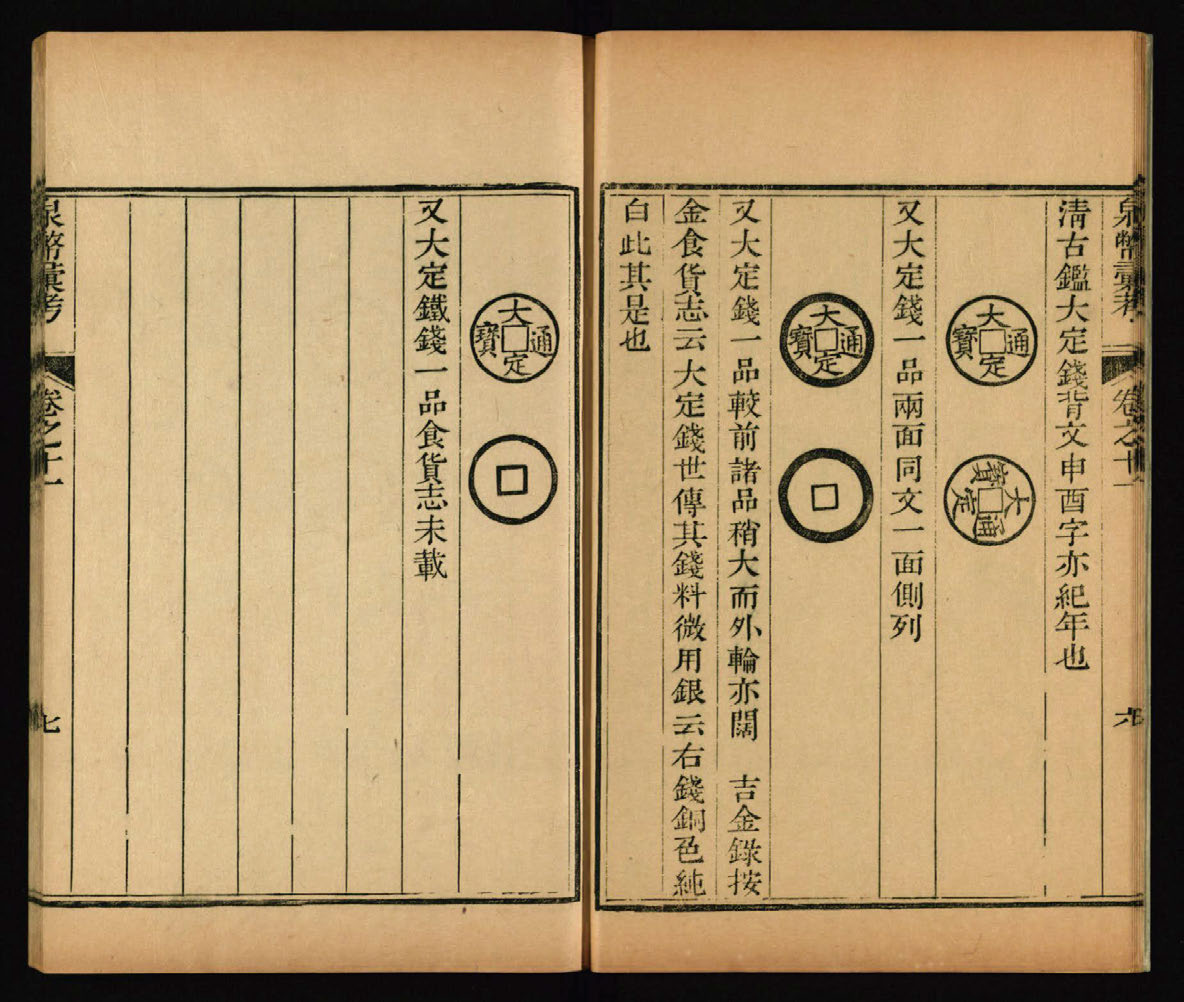 泉幣彙考
卷之十一
六
清古鑑大定錢背文申酉字亦紀年也
大定通寶
大定通寶
又大定錢一品兩面同文一面側列
大定通寶
又大定錢一品較前諸品稍大而外輪亦闊 吉金錄按
金食貨志云大定錢世傳其錢料微用銀云右錢銅色純
白此其是也
大定通寶
又大定鐵錢一品食貨志未載
泉幣彙考
卷之十一
七